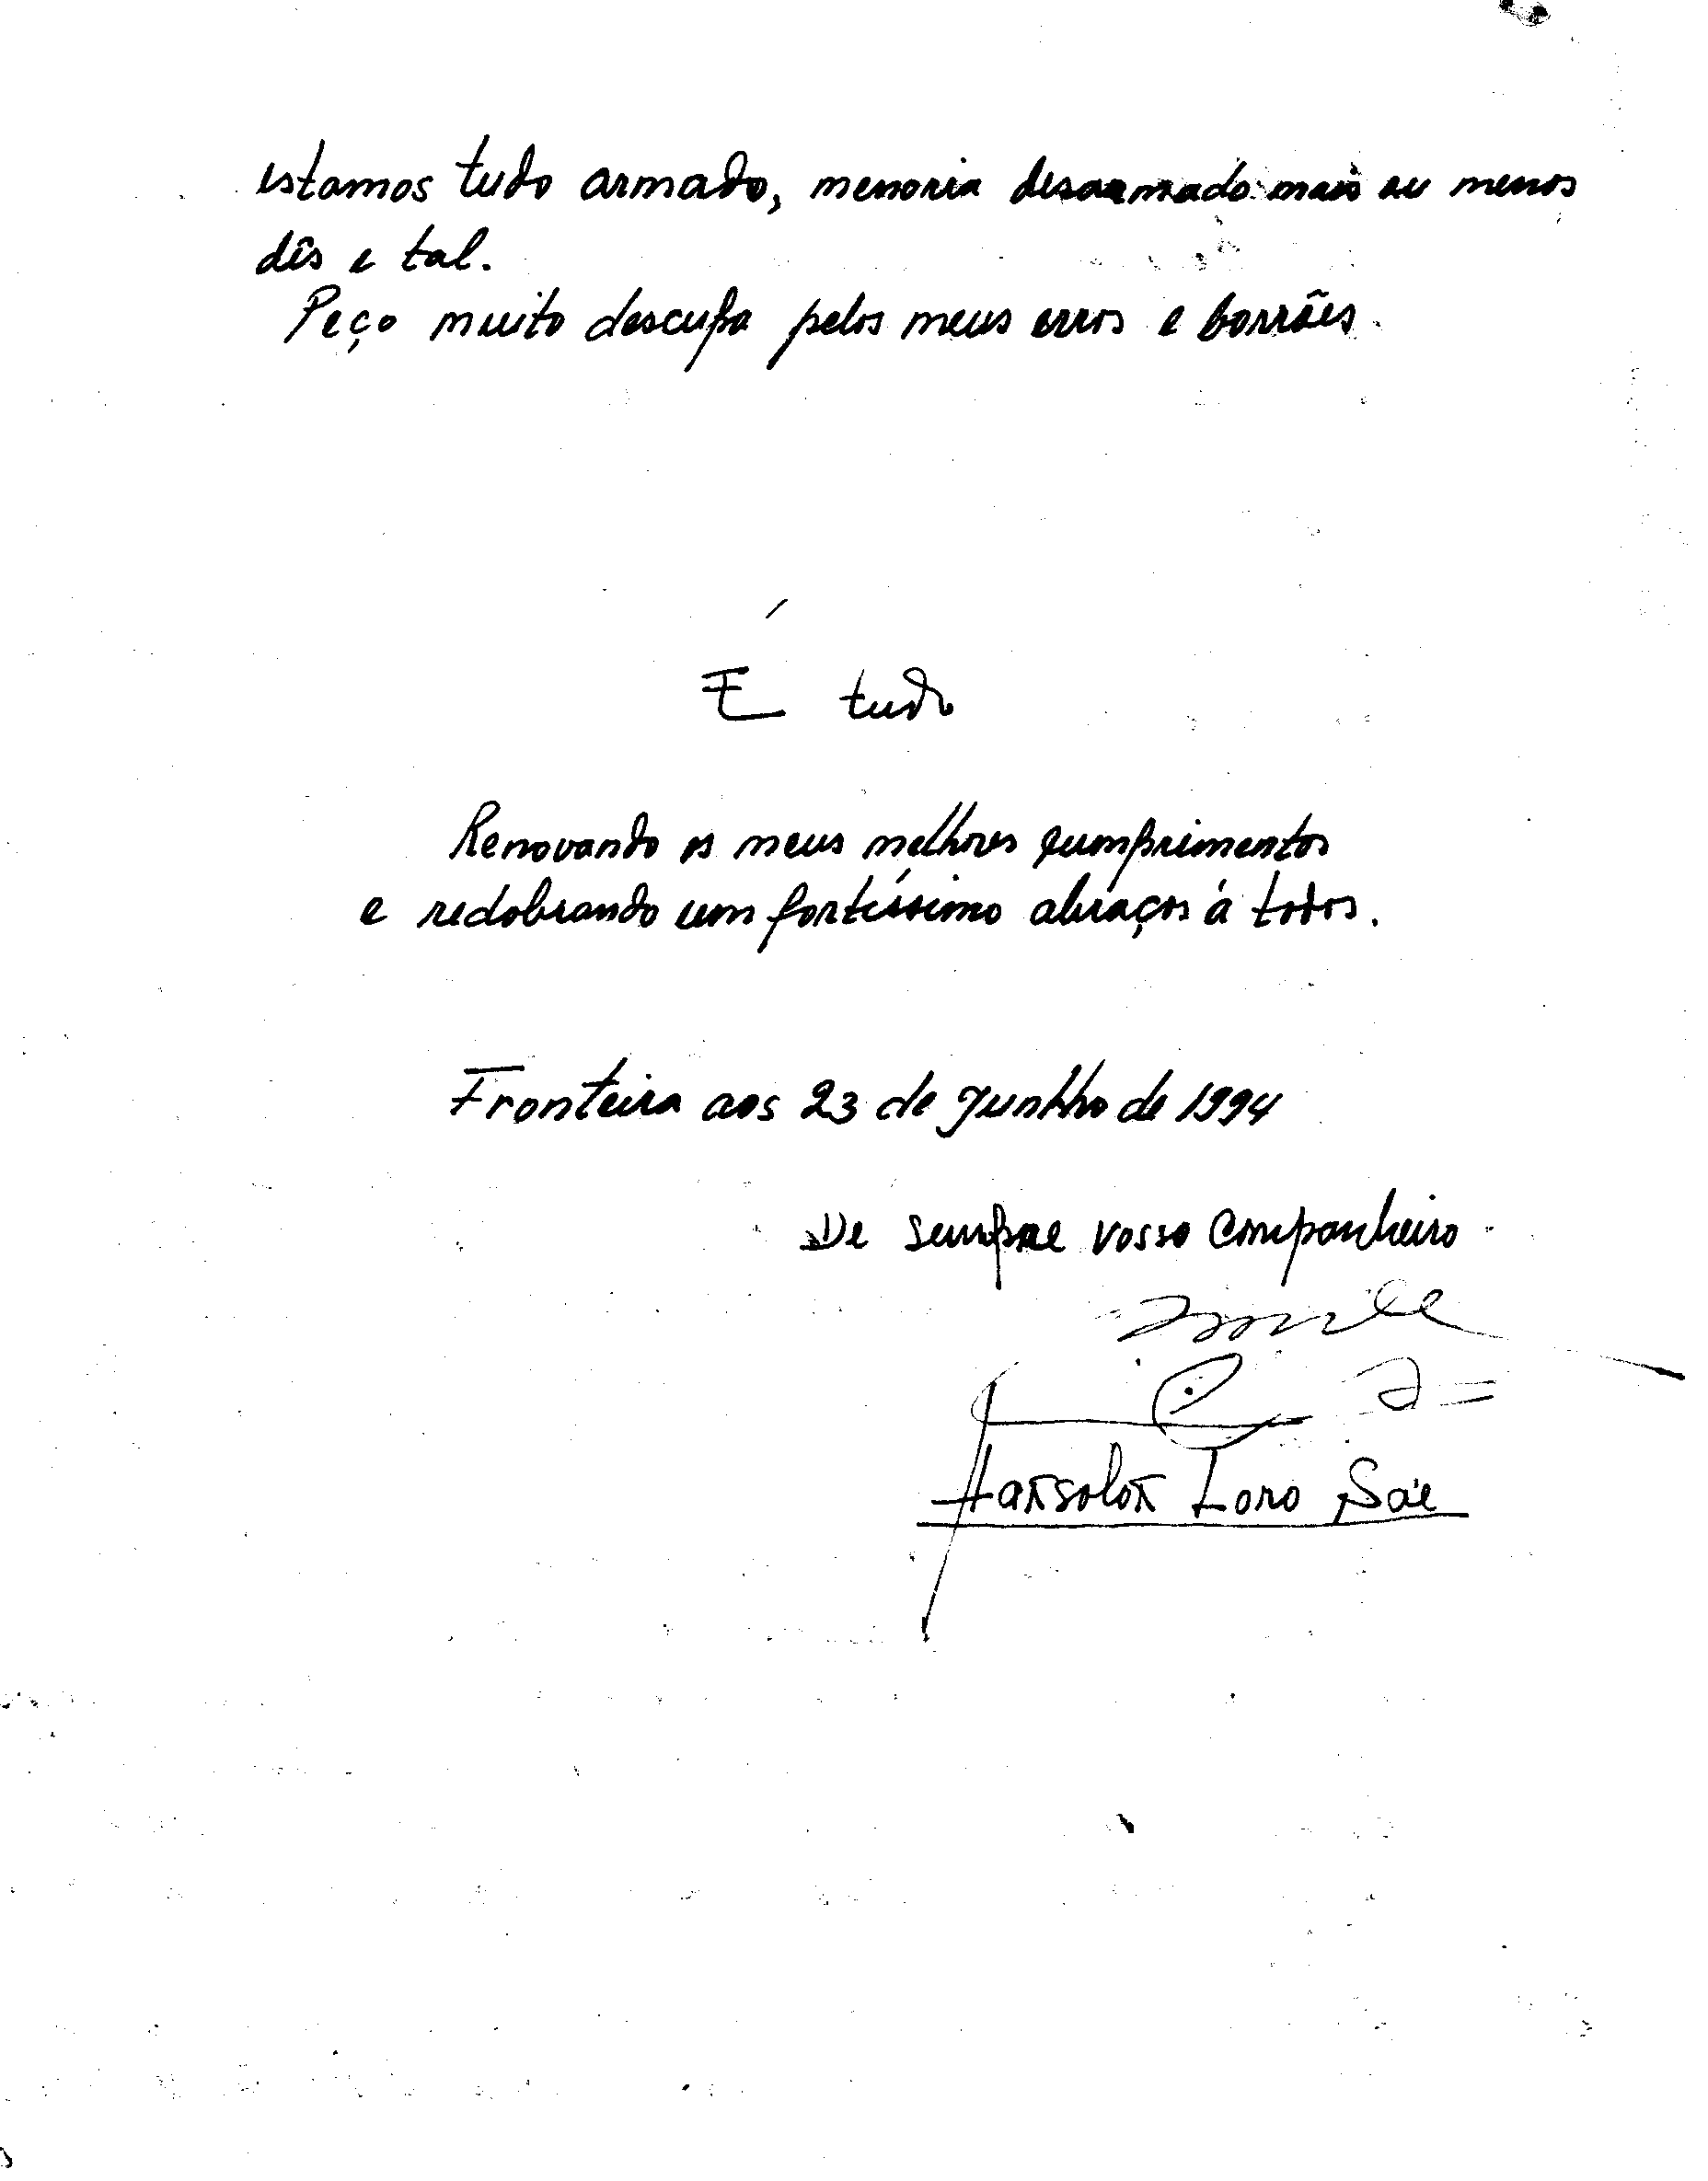 estamos tudo armado, menoria desarmado mais ou menos
dês e tal.
Peço muito descupa pelos meus erros e borrões.
É tudo
Renovando os meus melhores cumprimentos
e redobrando um fortíssimo abraços á todos.
Fronteira aos 23 de Junhho de 1994
De sempre vosso Companheiro
Loro Sa'e